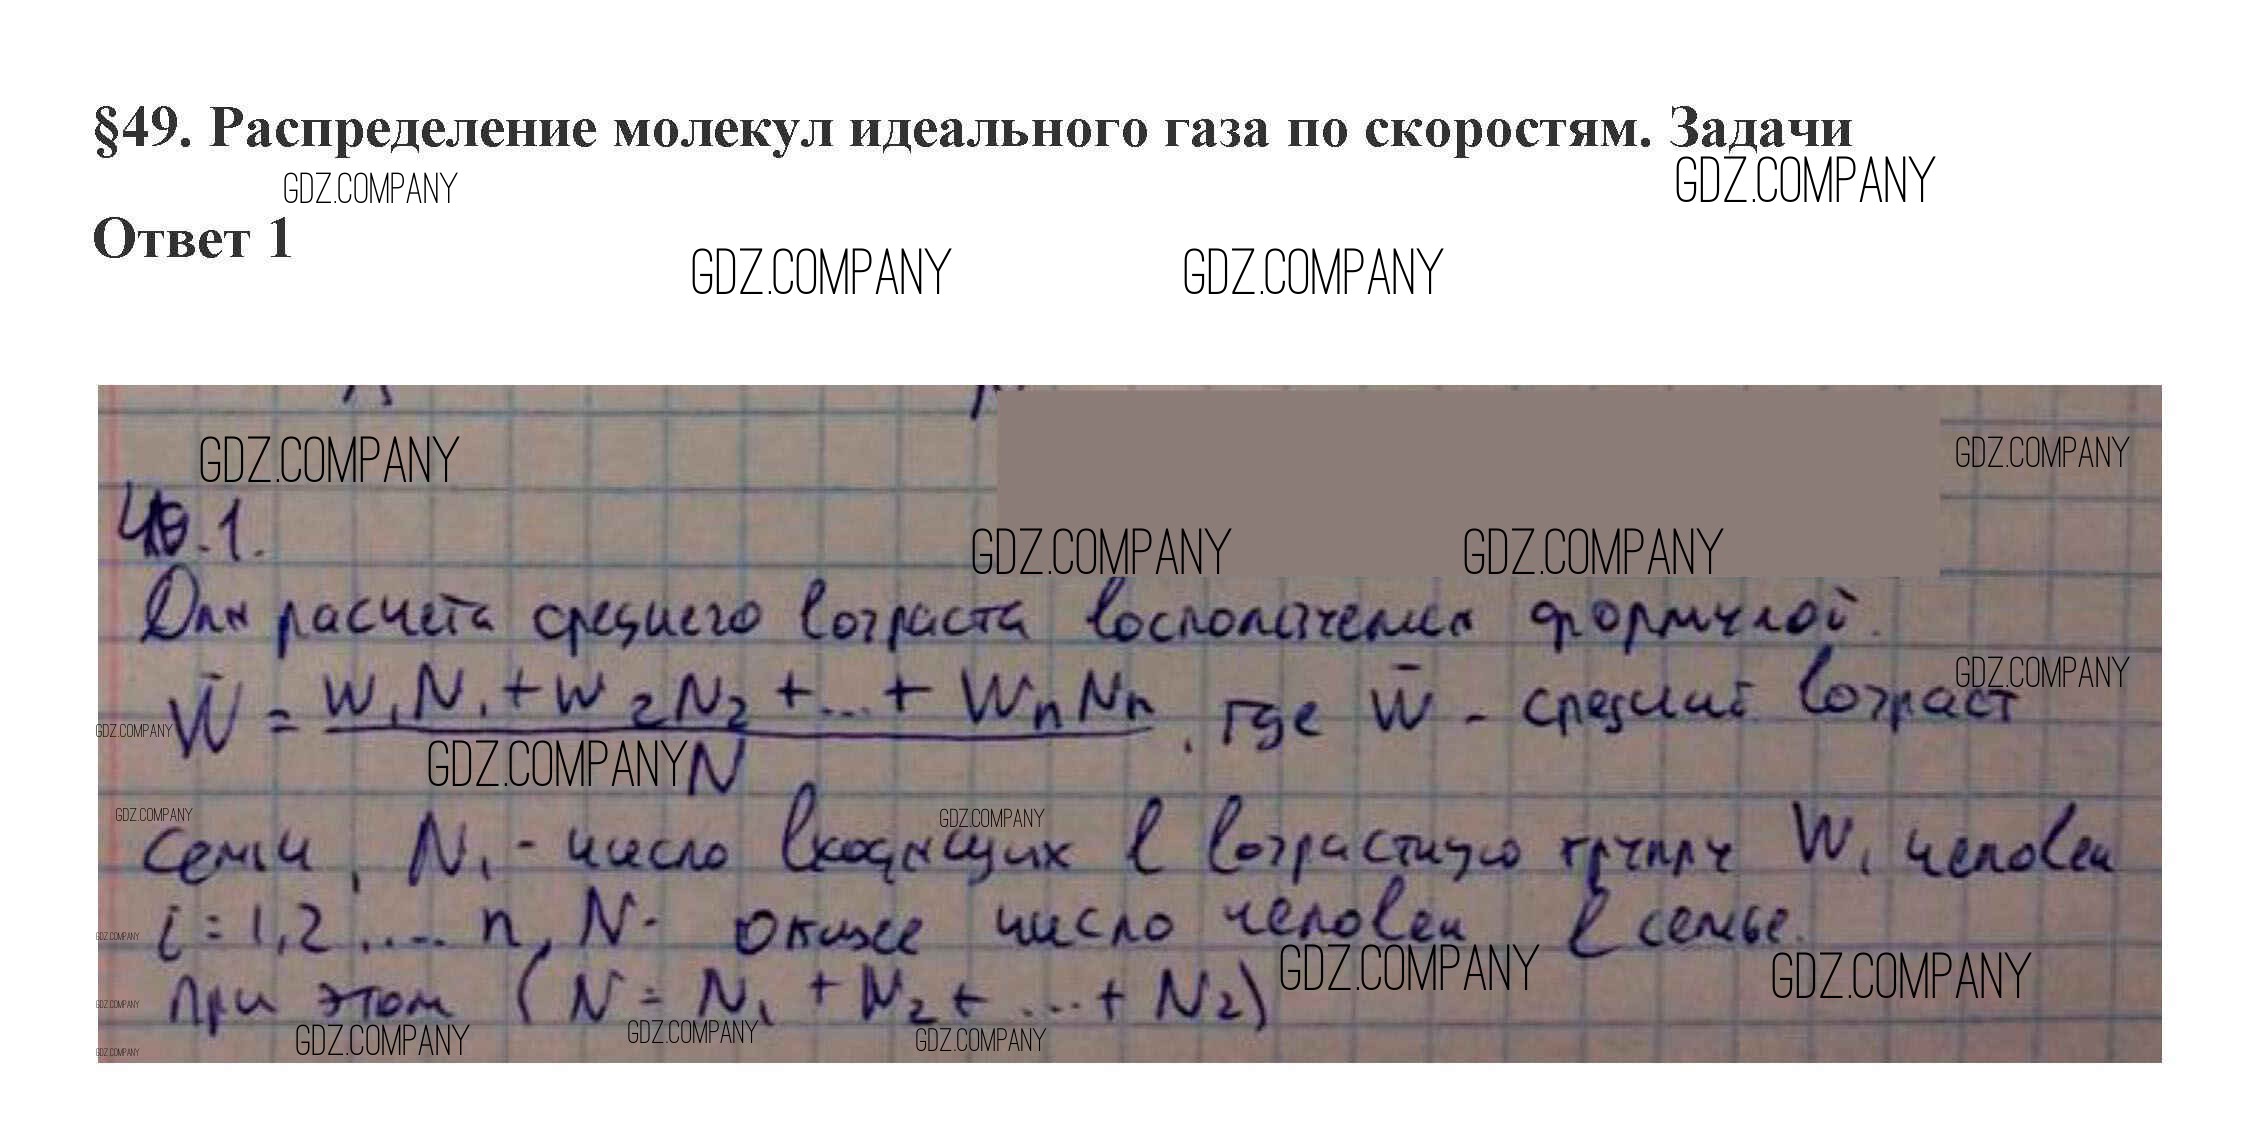 §49. Распределение молекул идеального газа по скоростям. Задачи
GDZ.COMPANY GDZ.COMPANY
Ответ 1
GDZ.COMPANY GDZ.COMPANY
GDZ.COMPANY GDZ.COMPANY
.1.
GDZ.COMPANY GDZ.COMPANY
Для расчета среднего возраста воспользуемся формулой.
GDZ.COMPANY
W̄ = W₁N₁ + W₂N₂ + ... + WₙNₙ / N, где W̄ - средний возраст
GDZ.COMPANY GDZ.COMPANY
GDZ.COMPANY GDZ.COMPANY
семьи, N₁ - число входящих в возрастную группу W₁ человек
i = 1, 2 .... n, N - число человек в семье.
GDZ.COMPANY GDZ.COMPANY GDZ.COMPANY
при этом (N = N₁ + N₂ + ... + N₂)
GDZ.COMPANY
GDZ.COMPANY GDZ.COMPANY GDZ.COMPANY
GDZ.COMPANY